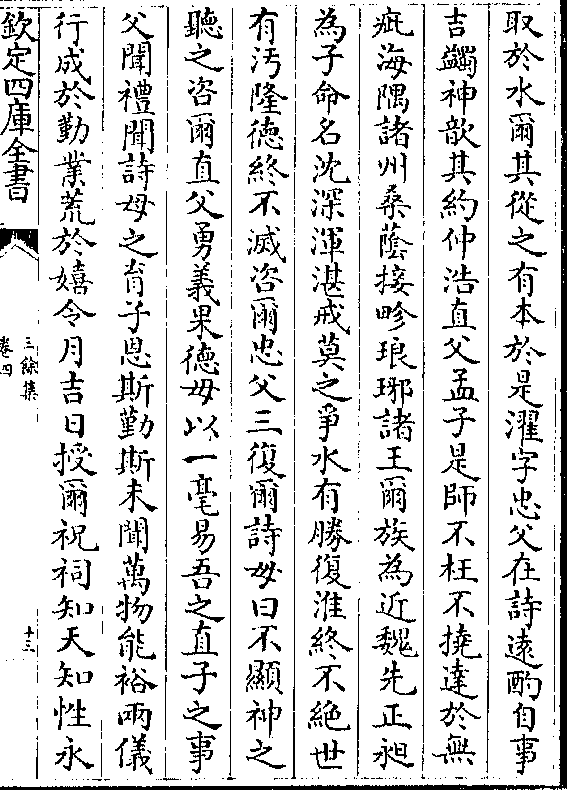 取於水爾其從之有本於是濯字忠父在詩遠酌自事
吉蠲神歆其約仲浩直父孟子是師不枉不撓達於無
疵海隅諸州桑蔭接畛琅琊諸王爾族為近魏先正昶
為子命名沈深渾湛戒莫之爭水有勝復淮終不絕世
有汚隆德終不滅咨爾忠父三復爾詩毋曰不顯神之
聽之咨爾直父勇義果德毋以一毫易吾之直子之事
父聞禮聞詩母之育子恩斯勤斯未聞萬物能裕兩儀
行成於勤業荒於嬉令月吉日授爾祝祠知天知性永
欽定四庫全書
三餘集
卷四
十三